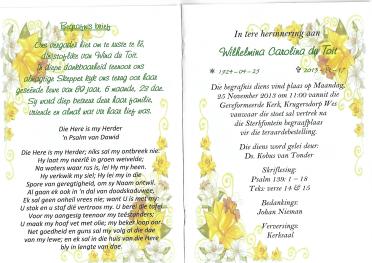 Begrafnis brief
Ons vergader hier om te ruste te lê,
die stoflike van Wina du Toit.
In diepe dankbaarheid teenoor ons
almagtige Skepper kyk ons terug oor haar
geseënde lewe van 89 jaar, 6 maande, 23 dae.
Sy word diep betreur deur haar familie,
vriende en almal wat vir haar lief was.
Die Here is my Herder
'n Psalm van Dawid
Die Here is my Herder; niks sal my ontbreek nie.
Hy laat my neerlê in groen weivelde;
Na waters waar rus is, lei Hy my heen.
Hy verkwik my siel; Hy lei my in die
Spore van geregtigheid, om sy Naam ontwil.
Al gaan ek ook in 'n dal van doodskaduwee,
Ek sal geen onheil vrees nie; want U is met my:
U stok en u staf dié vertroos my. U berei die tafel
Voor my aangesig teenoor my teëstanders;
U maak my hoof vet met olie; my beker loop oor.
Net goedheid en guns sal my volg al die dae
van my lewe; en ek sal in die huis van die Here
bly in lengte van dae.
In tere herinnering aan
Wilhelmina Carolina du Toit
* 1924-04-25
2013-11-17
Die begrafnis diens vind plaas op Maandag,
25 November 2013 om 11:00 vanuit die
Gereformeerde Kerk, Krugersdorp Wes
vanwaar die stoet sal vertrek na
die Sterkfontein begraafplaas
vir die teraardebestelling.
Die diens word gelei deur:
Dr. Kobus van Tonder
Skriflesing:
Psalm 139: 1 - 18
Teks: verse 14 & 15
Bedankings:
Johan Nieman
Verversings:
Kerksaal